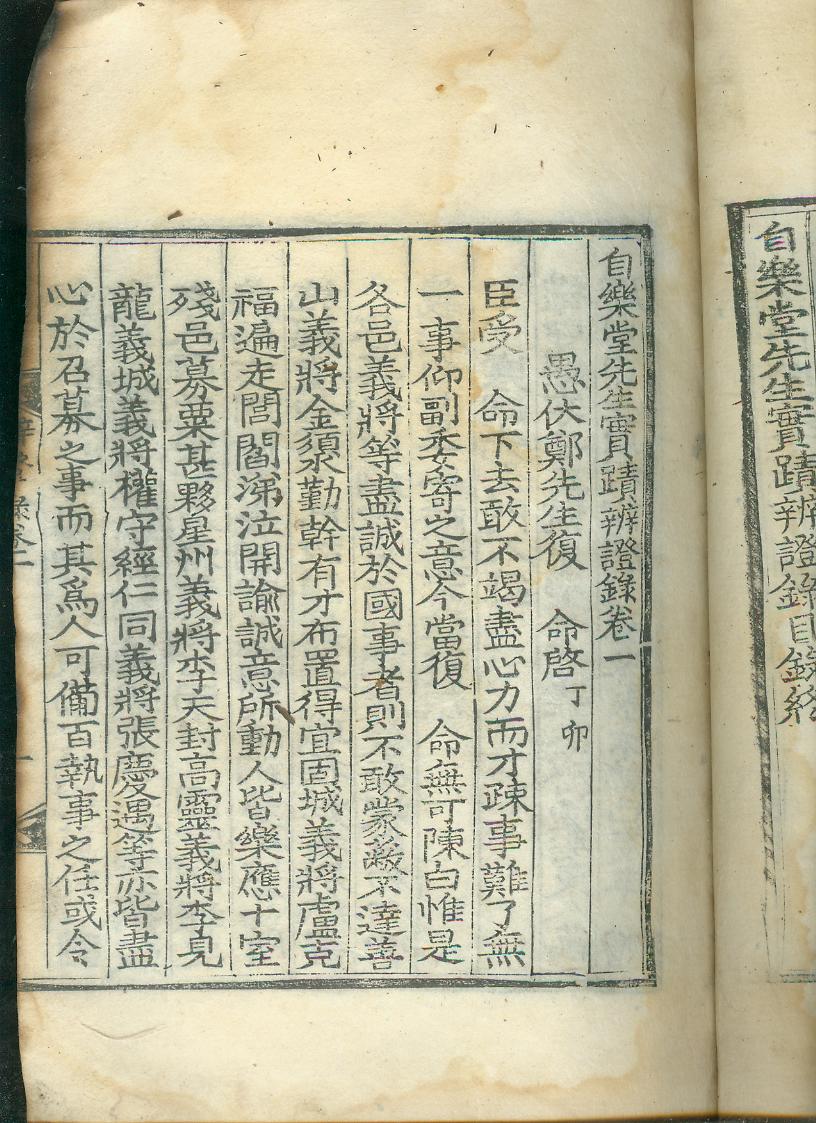 自樂堂先生實蹟辨證錄目錄終
自樂堂先生實蹟辨證錄卷一
愚伏鄭先生復 命啓丁卯
臣受 命下去敢不竭盡心力而才疎事難了無
一事仰副委寄之意今當復 命無可陳白惟是
各邑義將等盡誠於國事者則不敢蒙蔽不達善
山義將金須勤幹有才布置得宜固城義將盧克
福遍走閭閻涕泣開諭誠意所動人皆樂應十室
殘邑募粟甚夥星州義將李天封高靈義將李見
龍義城義將權守經仁同義將張慶遇等亦皆盡
心於召募之事而其爲人可備百執事之任或令